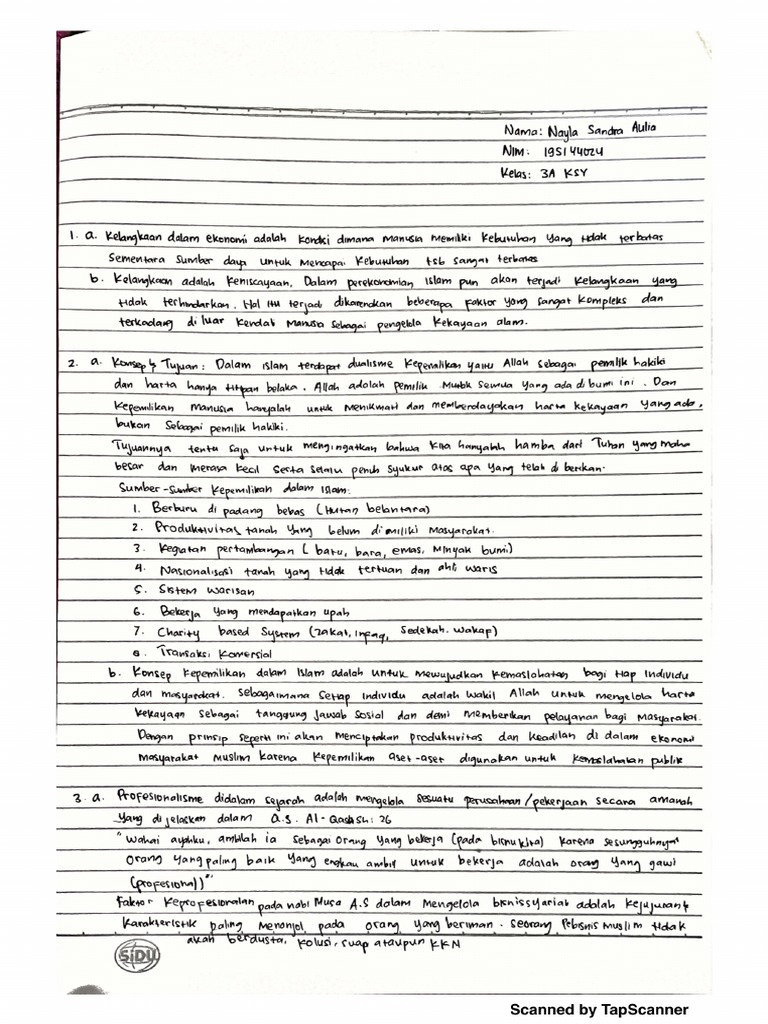 Nama: Nayla Sandra Aulia
NIM: 195144024
Kelas: 3A KSY
1. a. Kelangkaan dalam ekonomi adalah kondisi dimana manusia memiliki kebutuhan yang tidak terbatas
sementara sumber daya untuk mencapai kebutuhan tsb sangat terbatas
b. Kelangkaan adalah keniscayaan, Dalam perekonomian Islam pun akan terjadi kelangkaan yang
tidak terhindarkan. Hal itu terjadi dikarenakan beberapa faktor yang sangat kompleks dan
terkadang di luar kendali manusia sebagai pengelola kekayaan alam.
2. a. Konsep & Tujuan: Dalam islam terdapat dualisme kepemilikan yaitu Allah sebagai pemilik hakiki
dan harta hanya titipan belaka. Allah adalah pemilik mutlak semua yang ada di bumi ini. Dan
kepemilikan manusia hanyalah untuk menikmati dan memberdayakan harta kekayaan yang ada,
bukan sebagai pemilik hakiki.
Tujuannya tentu saja untuk mengingatkan bahwa kita hanyalah hamba dari Tuhan yang maha
besar dan merasa kecil serta selalu penuh syukur atas apa yang telah di berikan.
Sumber-sumber kepemilikan dalam Islam:
1. Berburu di padang bebas (Hutan belantara)
2. Produktivitas tanah yang belum di miliki masyarakat.
3. Kegiatan pertambangan (batu, bara, emas, minyak bumi)
4. Nasionalisasi tanah yang tidak tertuan dan ahli waris
5. Sistem warisan
6. Bekerja yang mendapatkan upah
7. Charity based system (zakat, infaq, sedekah. wakaf)
8. Transaksi komersial
b. Konsep kepemilikan dalam Islam adalah untuk mewujudkan kemaslahatan bagi tiap individu
dan masyarakat. sebagaimana setiap individu adalah wakil Allah untuk mengelola harta
kekayaan sebagai tanggung jawab sosial dan demi memberikan pelayanan bagi masyarakat.
Dengan prinsip seperti ini akan menciptakan produktivitas dan keadilan di dalam ekonomi
masyarakat muslim karena kepemilikan aset-aset digunakan untuk kemaslahatan publik
3. a. Profesionalisme didalam sejarah adalah mengelola sesuatu perusahaan/pekerjaan secara amanah
yang di jelaskan dalam Q.S. Al-Qashsh: 26
"Wahai ayahku, ambilah ia sebagai orang yang bekerja (pada bisnu kita) karena sesungguhnya"
orang yang paling baik yang engkau ambil untuk bekerja adalah orang yang gawi
(profesional)"
Faktor keprofesionalan pada nabi Musa A.S dalam mengelola bisnis syariah adalah kejujuran &
karakteristik paling menonjol pada orang yang beriman. seorang pebisnis muslim tidak
akan berdusta, kolusi, suap ataupun KKN
SIDU
Scanned by TapScanner